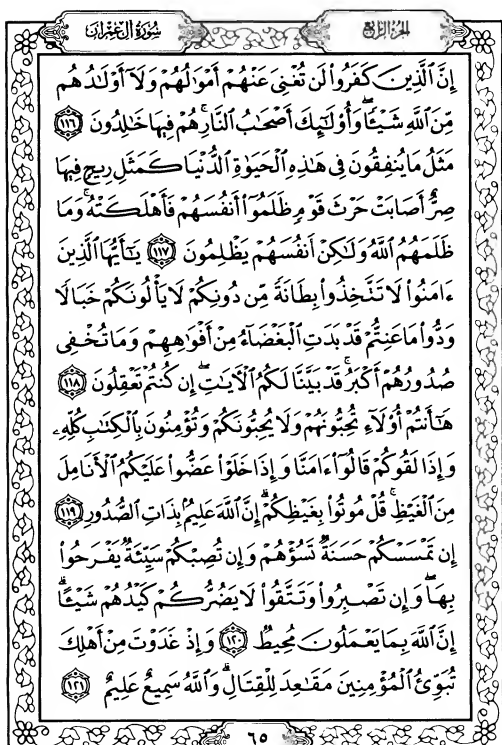 سُورَةُ آلِ عِمْرَانَ
الجُزْءُ الرَّابِعُ
إِنَّ الَّذِينَ كَفَرُوا لَن تُغْنِيَ عَنْهُمْ أَمْوَالُهُمْ وَلَا أَوْلَادُهُم
مِّنَ اللَّهِ شَيْئًا ۖ وَأُولَٰئِكَ أَصْحَابُ النَّارِ ۚ هُمْ فِيهَا خَالِدُونَ ﴿١١٦﴾
مَثَلُ مَا يُنفِقُونَ فِي هَٰذِهِ الْحَيَوٰةِ الدُّنْيَا كَمَثَلِ رِيحٍ فِيهَا
صِرٌّ أَصَابَتْ حَرْثَ قَوْمٍ ظَلَمُوا أَنفُسَهُمْ فَأَهْلَكَتْهُ ۚ وَمَا
ظَلَمَهُمُ اللَّهُ وَلَٰكِنْ أَنفُسَهُمْ يَظْلِمُونَ ﴿١١٧﴾ يَٰأَيُّهَا الَّذِينَ
ءَامَنُوا لَا تَتَّخِذُوا بِطَانَةً مِّن دُونِكُمْ لَا يَأْلُونَكُمْ خَبَالًا
وَدُّوا مَا عَنِتُّمْ قَدْ بَدَتِ الْبَغْضَاءُ مِنْ أَفْوَاهِهِمْ وَمَا تُخْفِي
صُدُورُهُمْ أَكْبَرُ ۚ قَدْ بَيَّنَّا لَكُمُ الْآيَاتِ ۖ إِن كُنتُمْ تَعْقِلُونَ ﴿١١٨﴾
هَٰأَنتُمْ أُولَاءِ تُحِبُّونَهُمْ وَلَا يُحِبُّونَكُمْ وَتُؤْمِنُونَ بِالْكِتَابِ كُلِّهِ
وَإِذَا لَقُوكُمْ قَالُوا ءَامَنَّا وَإِذَا خَلَوْا عَضُّوا عَلَيْكُمُ الْأَنَامِلَ
مِنَ الْغَيْظِ ۚ قُلْ مُوتُوا بِغَيْظِكُمْ ۗ إِنَّ اللَّهَ عَلِيمٌ بِذَاتِ الصُّدُورِ ﴿١١٩﴾
إِن تَمْسَسْكُمْ حَسَنَةٌ تَسُؤْهُمْ وَإِن تُصِبْكُمْ سَيِّئَةٌ يَفْرَحُوا
بِهَا ۖ وَإِن تَصْبِرُوا وَتَتَّقُوا لَا يَضُرُّكُمْ كَيْدُهُمْ شَيْئًا ۗ
إِنَّ اللَّهَ بِمَا يَعْمَلُونَ مُحِيطٌ ﴿١٢٠﴾ وَإِذْ غَدَوْتَ مِنْ أَهْلِكَ
تُبَوِّئُ الْمُؤْمِنِينَ مَقَاعِدَ لِلْقِتَالِ ۗ وَاللَّهُ سَمِيعٌ عَلِيمٌ ﴿١٢١﴾
٦٥